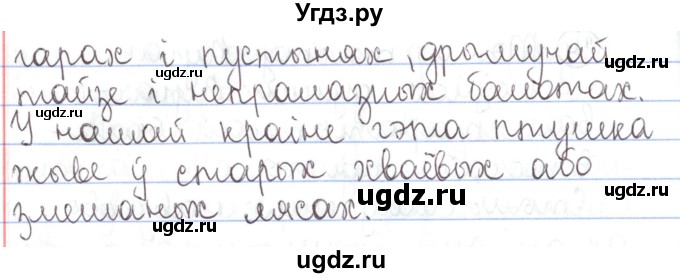 Угдз.ру
гарах і пустынях, дрымучай
тайзе і непралазных балотах.
У нашай краіне гэта птушка
жыве ў старых хваёвых або
змешаных лясах.
ugdz.ru
ugdz.ru
ugdz.ru
ugdz.ru
ugdz.ru
ugdz.ru
ugdz.ru
ugdz.ru
ugdz.ru
ugdz.ru